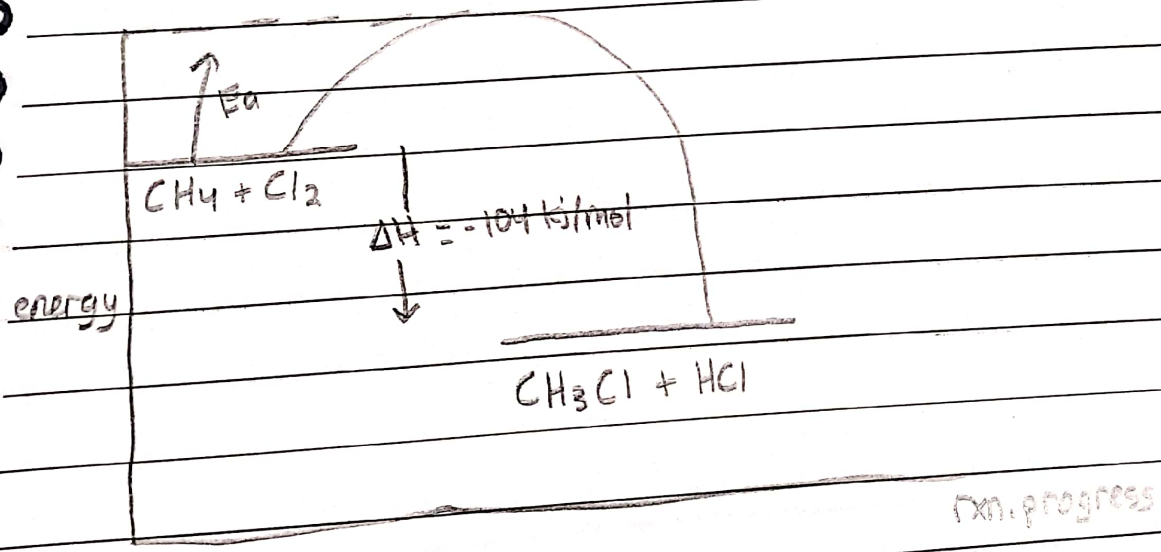 Ea
CH4 + Cl2
ΔH = -104 kJ/mol
energy
CH3Cl + HCl
rxn. progress